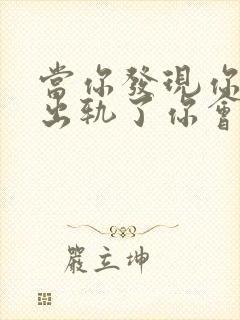 當你發現你
出軌了你會
嚴立坤